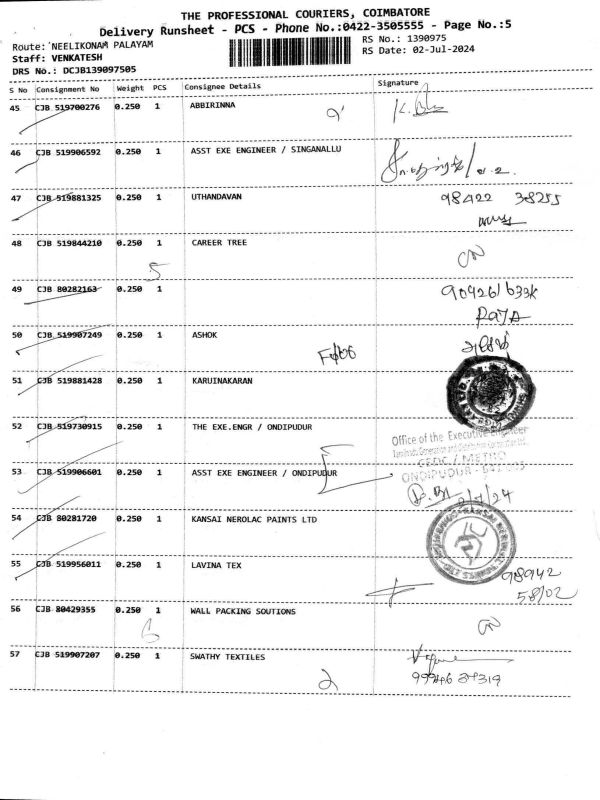 THE PROFESSIONAL COURIERS, COIMBATORE
Delivery Runsheet - PCS - Phone No.:0422-3505555 - Page No.:5
Route: NEELIKONAM PALAYAM
RS No.: 1390975
Staff: VENKATESH
RS Date: 02-Jul-2024
DRS No.: DCJB139097505
S No Consignment No Weight PCS Consignee Details Signature
45 CJB 519700276 0.250 1 ABBIRINNA
46 CJB 519906592 0.250 1 ASST EXE ENGINEER / SINGANALLU
47 CJB 519881325 0.250 1 UTHANDAVAN 98422 38255
48 CJB 519844210 0.250 1 CAREER TREE
5
49 CJB 80282163 0.250 1
RAJA
50 CJB 519907249 0.250 1 ASHOK
51 CJB 519881428 0.250 1 KARUINAKARAN
52 CJB 519730915 0.250 1 THE EXE.ENGR / ONDIPUDUR
Office of the Executive Engineer
53 CJB 519906601 0.250 1 ASST EXE ENGINEER / ONDIPUDUR
54 CJB 80281720 0.250 1 KANSAI NEROLAC PAINTS LTD
55 CJB 519956011 0.250 1 LAVINA TEX
98942
58102
56 CJB 80429355 0.250 1 WALL PACKING SOUTIONS
57 CJB 519907207 0.250 1 SWATHY TEXTILES
2